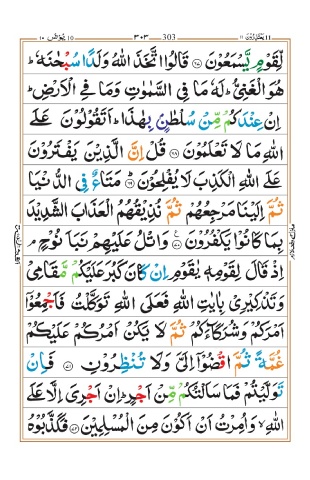 يُوْنُس ١٠ 303 ٣٠٣ يَعْتَذِرُوْنَ ١١
لِّقَوْمٍ يَّسْمَعُوْنَ ﴿۶۷﴾ قَالُوا اتَّخَذَ اللّٰهُ وَلَدًا سُبْحٰنَهٗ ؕ
هُوَ الْغَنِیُّ ؕ لَهٗ مَا فِی السَّمٰوٰتِ وَمَا فِی الْاَرْضِ ؕ
اِنْ عِنْدَكُمْ مِّنْ سُلْطٰنٍۭ بِهٰذَا ؕ اَتَقُوْلُوْنَ عَلَی
اللّٰهِ مَا لَا تَعْلَمُوْنَ ﴿۶۸﴾ قُلْ اِنَّ الَّذِیْنَ یَفْتَرُوْنَ
عَلَی اللّٰهِ الْكَذِبَ لَا یُفْلِحُوْنَ ﴿۶۹﴾ مَتَاعٌ فِی الدُّنْیَا
ثُمَّ اِلَیْنَا مَرْجِعُهُمْ ثُمَّ نُذِیْقُهُمُ الْعَذَابَ الشَّدِیْدَ
بِمَا كَانُوْا یَكْفُرُوْنَ ﴿۷۰﴾ وَاتْلُ عَلَیْهِمْ نَبَاَ نُوْحٍ ۘ
اِذْ قَالَ لِقَوْمِهٖ یٰقَوْمِ اِنْ كَانَ كَبُرَ عَلَیْكُمْ مَّقَامِیْ
وَتَذْكِیْرِیْ بِاٰیٰتِ اللّٰهِ فَعَلَی اللّٰهِ تَوَكَّلْتُ فَاَجْمِعُوْۤا
اَمْرَكُمْ وَشُرَكَآءَكُمْ ثُمَّ لَا یَكُنْ اَمْرُكُمْ عَلَیْكُمْ
غُمَّةً ثُمَّ اقْضُوْۤا اِلَیَّ وَلَا تُنْظِرُوْنِ ﴿۷۱﴾ فَاِنْ
تَوَلَّیْتُمْ فَمَا سَاَلْتُكُمْ مِّنْ اَجْرٍ ؕ اِنْ اَجْرِیَ اِلَّا عَلَی
اللّٰهِ ۙ وَاُمِرْتُ اَنْ اَكُوْنَ مِنَ الْمُسْلِمِیْنَ ﴿۷۲﴾ فَكَذَّبُوْهُ